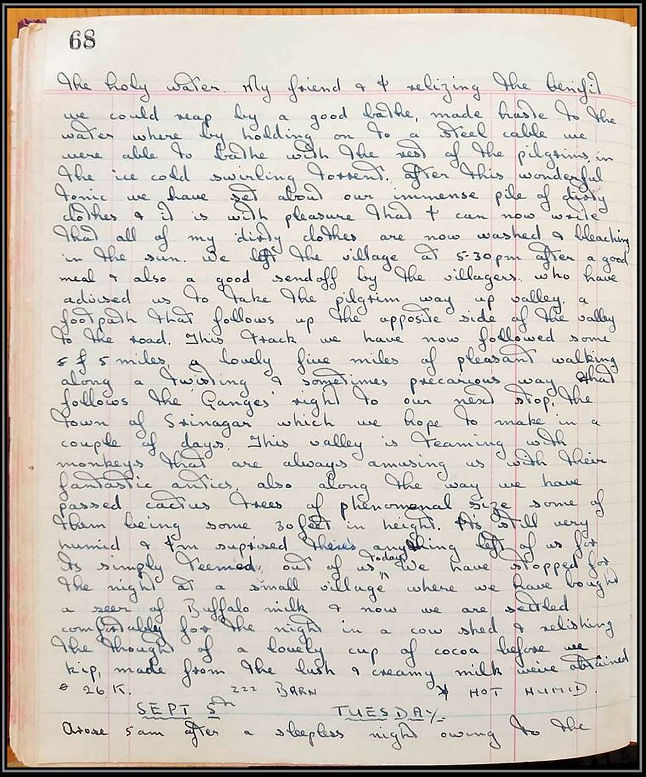 68
The holy water. My friend & I relizing the benifit
we could reap by a good bathe, made haste to the
water where by holding on to a steel cable we
were able to bathe with the rest of the pilgrims, in
the ice cold swirling torrent. After this wonderful
tonic we have set about our immense pile of dirty
clothes & it is with pleasure that I can now write
that all of my dirty clothes are now washed & bleaching
in the sun. We left the village at 5-30pm after a good
meal & also a good sendoff by the villagers. who have
adivsed us to take the pilgrim way up valley. a
footpath that follows up the opposite side of the valley
to the road. This track we have now followed some
5 miles, a lovely five miles of pleasant walking
along a twisting & sometimes precarious way that
follows the Ganges right to our next stop, the
town of Srinagar which we hope to make in a
couple of days. This valley is teaming with
monkeys that are always amusing us with their
fantastic antics. also along the way we have
passed cactus trees of phenomenal size some of
them being some 30 feet in height. Its still very
humid & I'm suprised there's anything left of us for
Its simply teemed out of us today. We have stopped for
the night at a small village where we have bought
a seer of Buffalo milk & now we are settled
comfortably for the night in a cow shed & relishing
the thought of a lovely cup of cocoa before we
kip, made from the lush & creamy milk weve obtained
26. K. 222 BARN HOT HUMID.
SEPT 5th TUESDAY.
Arose 5am after a sleepless night owing to the